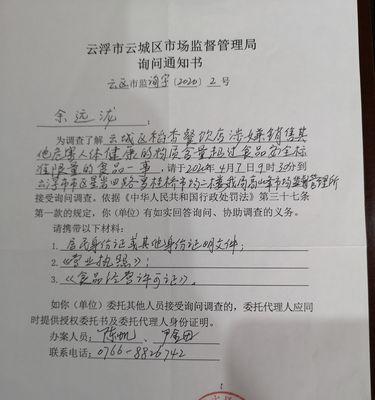 云浮市云城区市场监督管理局
询问通知书
云区市监询字〔2020〕2号
余远泷：
为调查了解 云城区稻香餐饮店涉嫌销售其
他危害人体健康的物质含量超过食品安全标
准限量的食品一事，请于2020年4月7日9时30分到
云浮市市区星岩四路 桂桥市场二楼我局高峰市场监督管理所
接受询问调查。依据《中华人民共和国行政处罚法》第三十七条
第一款的规定，你（单位）有如实回答询问、协助调查的义务。
请携带以下材料：
1. 居民身份证或其他身份证明文件；
2. 《营业执照》；
3. 《食品经营许可证》。
如你（单位）委托其他人员接受询问调查的，委托代理人应同
时提供授权委托书及委托代理人身份证明。
办案人员：陈帆、
联系电话：0766-8826742